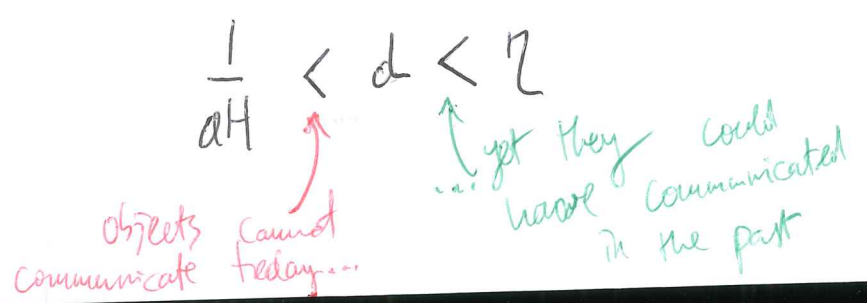 1/aH < d < η
objects cannot
communicate today...
... yet they could
have communicated
in the past